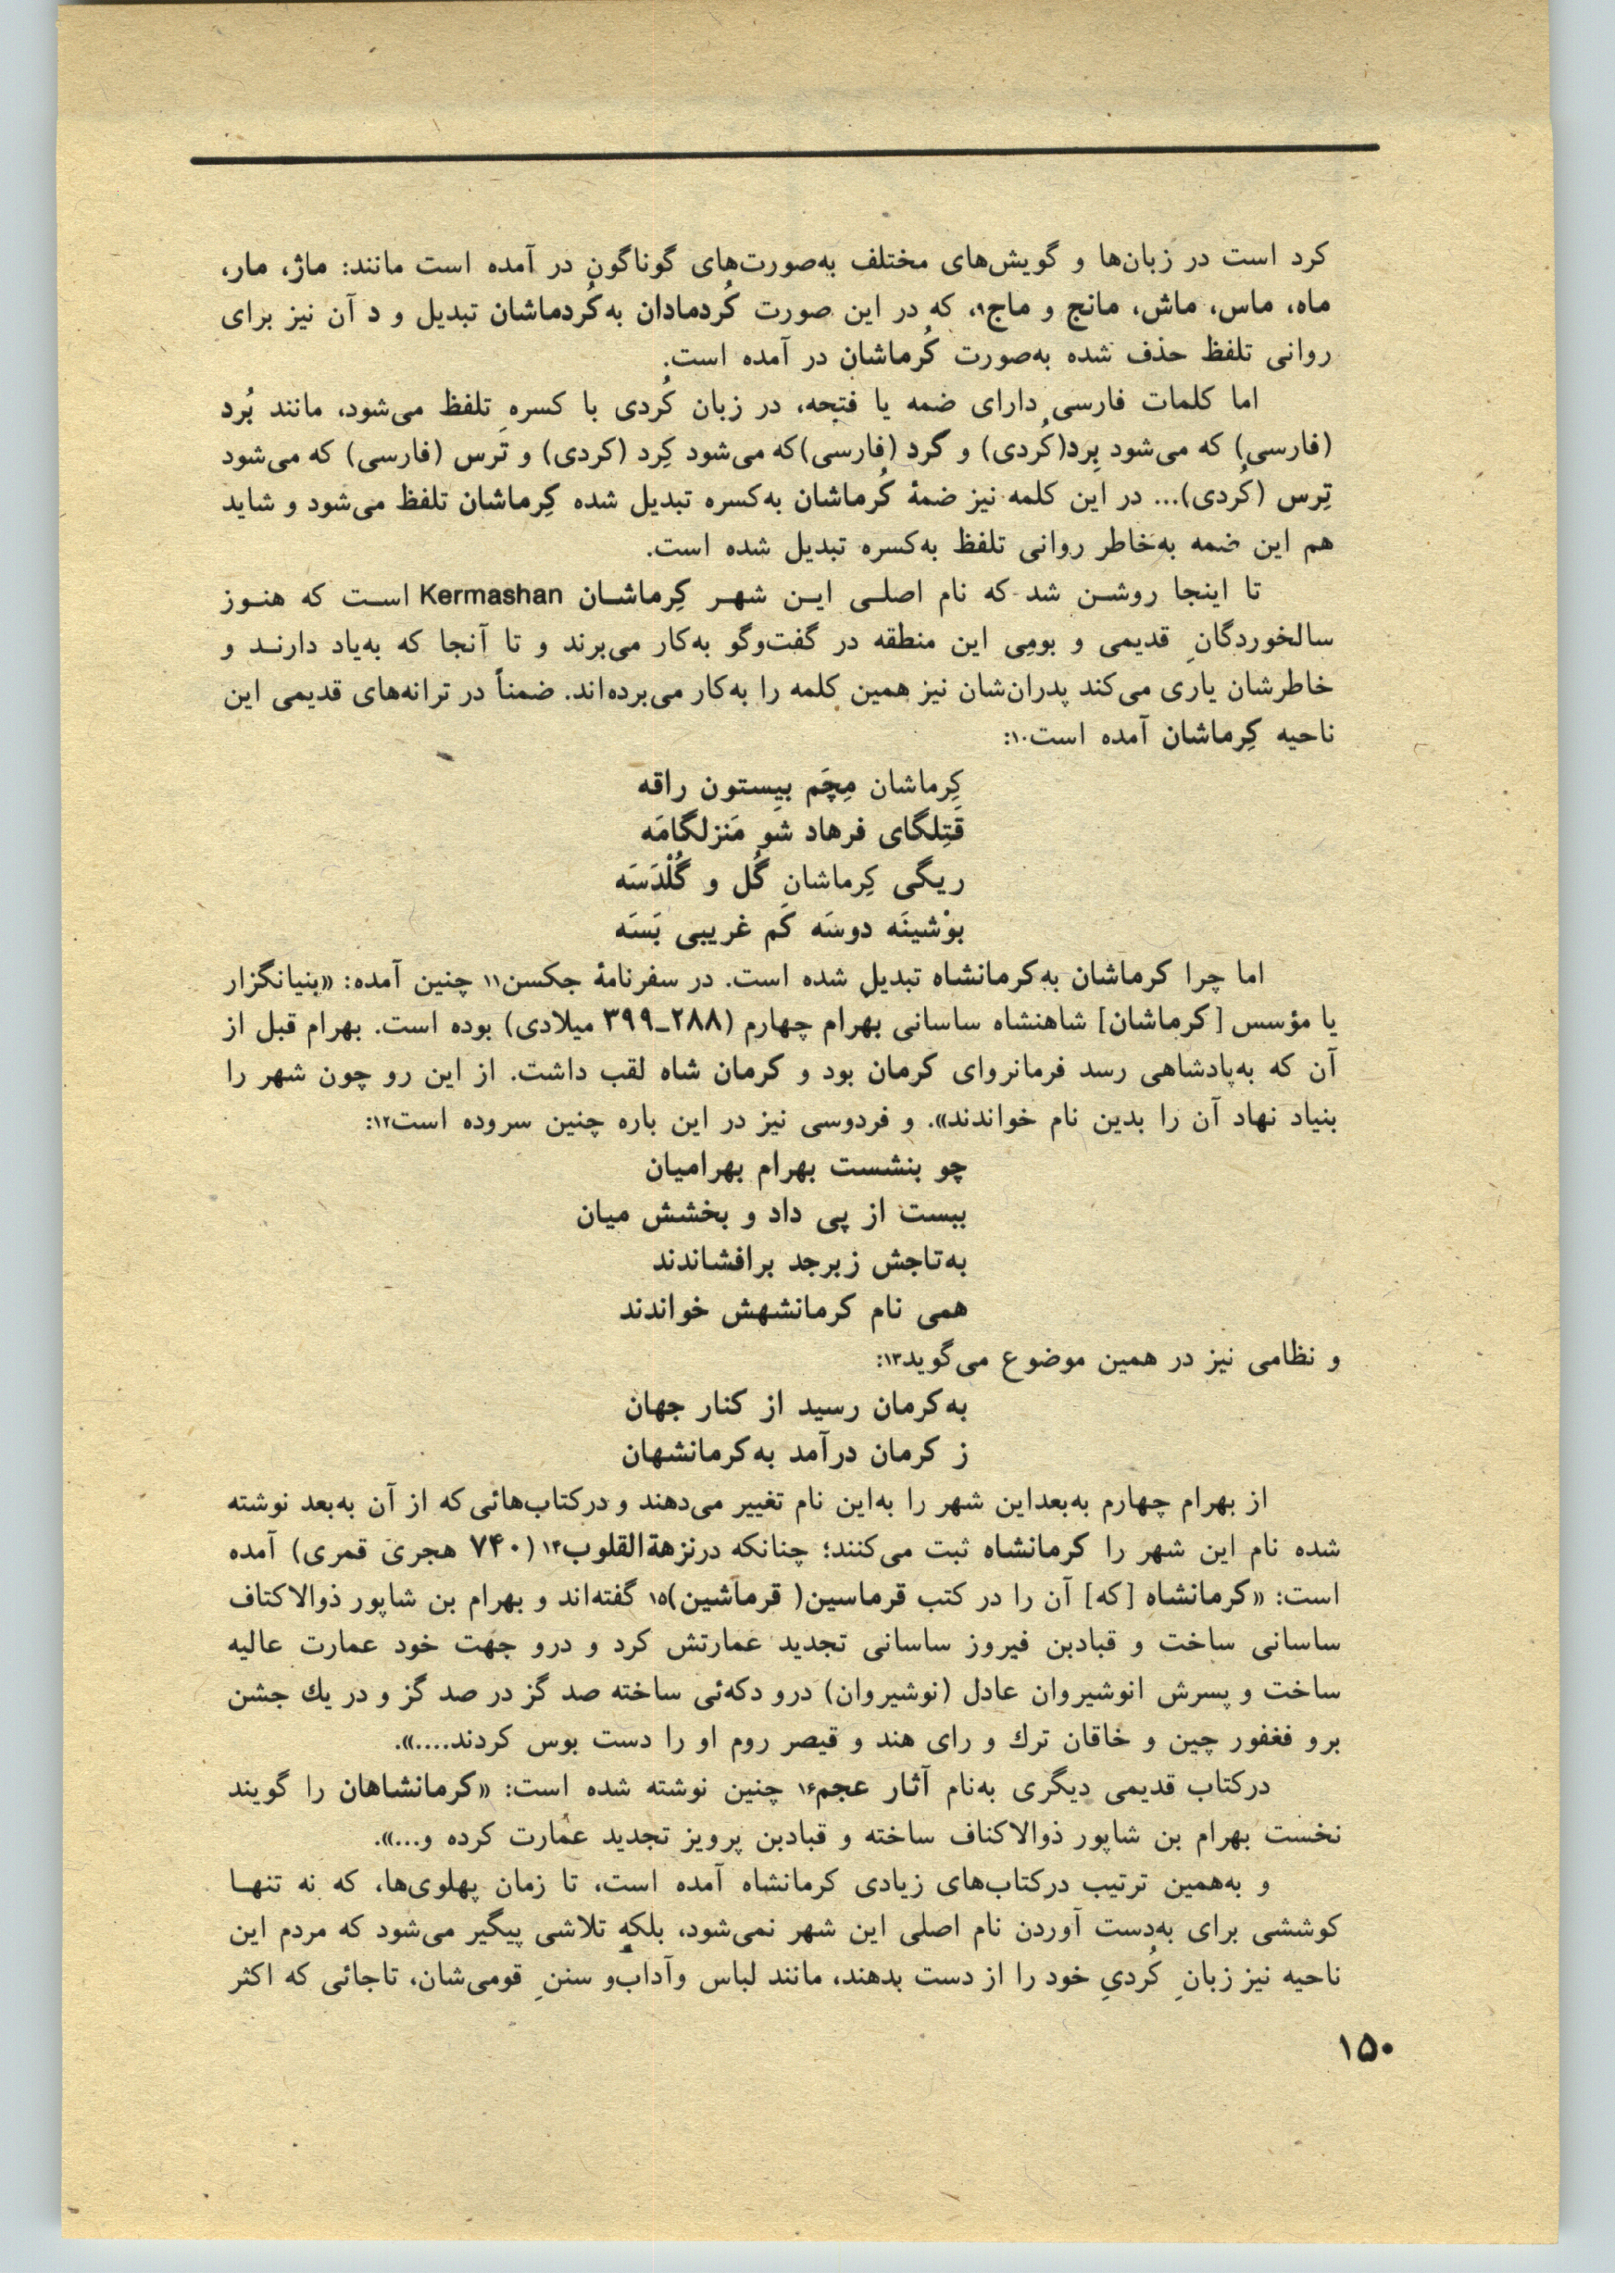 کرد است در زبان‌ها و گویش‌های مختلف به‌صورت‌های گوناگون در آمده است مانند: ماژ، مار،
ماه، ماس، ماش، مانج و ماج۹، که در این صورت کُردمادان به‌کُردماشان تبدیل و د آن نیز برای
روانی تلفظ حذف شده به‌صورت کُرماشان در آمده است.
اما کلمات فارسی دارای ضمه یا فتحه، در زبان کُردی با کسره تلفظ می‌شود، مانند بُرد
(فارسی) که می‌شود بِرد(کُردی) و گرد (فارسی)که می‌شود کِرد (کردی) و تَرس (فارسی) که می‌شود
تِرس (کُردی)... در این کلمه نیز ضمهٔ کُرماشان به‌کسره تبدیل شده کِرماشان تلفظ می‌شود و شاید
هم این ضمه به‌خاطر روانی تلفظ به‌کسره تبدیل شده است.
تا اینجا روشن شد که نام اصلی این شهر کِرماشان Kermashan است که هنوز
سالخوردگانِ قدیمی و بومی این منطقه در گفت‌وگو به‌کار می‌برند و تا آنجا که به‌یاد دارند و
خاطرشان یاری می‌کند پدران‌شان نیز همین کلمه را به‌کار می‌برده‌اند. ضمناً در ترانه‌های قدیمی این
ناحیه کِرماشان آمده است۱۰:
کِرماشان مِچَم بیستون راقه
قَتِلگای فرهاد شو مَنزلگامَه
ریگی کِرماشان گُل و گُلْدَسَه
بوْشینَه دوسَه کَم غریبی بَسَه
اما چرا کرماشان به‌کرمانشاه تبدیل شده است. در سفرنامهٔ جکسن۱۱ چنین آمده: «بنیانگزار
یا مؤسس [کرماشان] شاهنشاه ساسانی بهرام چهارم (۲۸۸ـ۳۹۹ میلادی) بوده است. بهرام قبل از
آن که به‌پادشاهی رسد فرمانروای کرمان بود و کرمان شاه لقب داشت. از این رو چون شهر را
بنیاد نهاد آن را بدین نام خواندند». و فردوسی نیز در این باره چنین سروده است۱۲:
چو بنشست بهرام بهرامیان
ببست از پی داد و بخشش میان
به‌تاجش زبرجد برافشاندند
همی نام کرمانشهش خواندند
و نظامی نیز در همین موضوع می‌گوید۱۳:
به‌کرمان رسید از کنار جهان
ز کرمان درآمد به‌کرمانشهان
از بهرام چهارم به‌بعداین شهر را به‌این نام تغییر می‌دهند و درکتاب‌هائی که از آن به‌بعد نوشته
شده نام این شهر را کرمانشاه ثبت می‌کنند؛ چنانکه درنزهةالقلوب۱۴ (۷۴۰ هجری قمری) آمده
است: «کرمانشاه [که] آن را در کتب قرماسین( قرماشین)۱۵ گفته‌اند و بهرام بن شاپور ذوالاکتاف
ساسانی ساخت و قبادبن فیروز ساسانی تجدید عمارتش کرد و درو جهت خود عمارت عالیه
ساخت و پسرش انوشیروان عادل (نوشیروان) درو دکه‌ئی ساخته صد گز در صد گز و در یك جشن
برو فغفور چین و خاقان ترك و رای هند و قیصر روم او را دست بوس کردند....».
درکتاب قدیمی دیگری به‌نام آثار عجم۱۶ چنین نوشته شده است: «کرمانشاهان را گویند
نخست بهرام بن شاپور ذوالاکناف ساخته و قبادبن پرویز تجدید عمارت کرده و...».
و به‌همین ترتیب درکتاب‌های زیادی کرمانشاه آمده است، تا زمان پهلوی‌ها، که نه تنها
کوششی برای به‌دست آوردن نام اصلی این شهر نمی‌شود، بلکه تلاشی پیگیر می‌شود که مردم این
ناحیه نیز زبانِ کُردیِ خود را از دست بدهند، مانند لباس وآداب‌و سننِ قومی‌شان، تاجائی که اکثر
۱۵۰